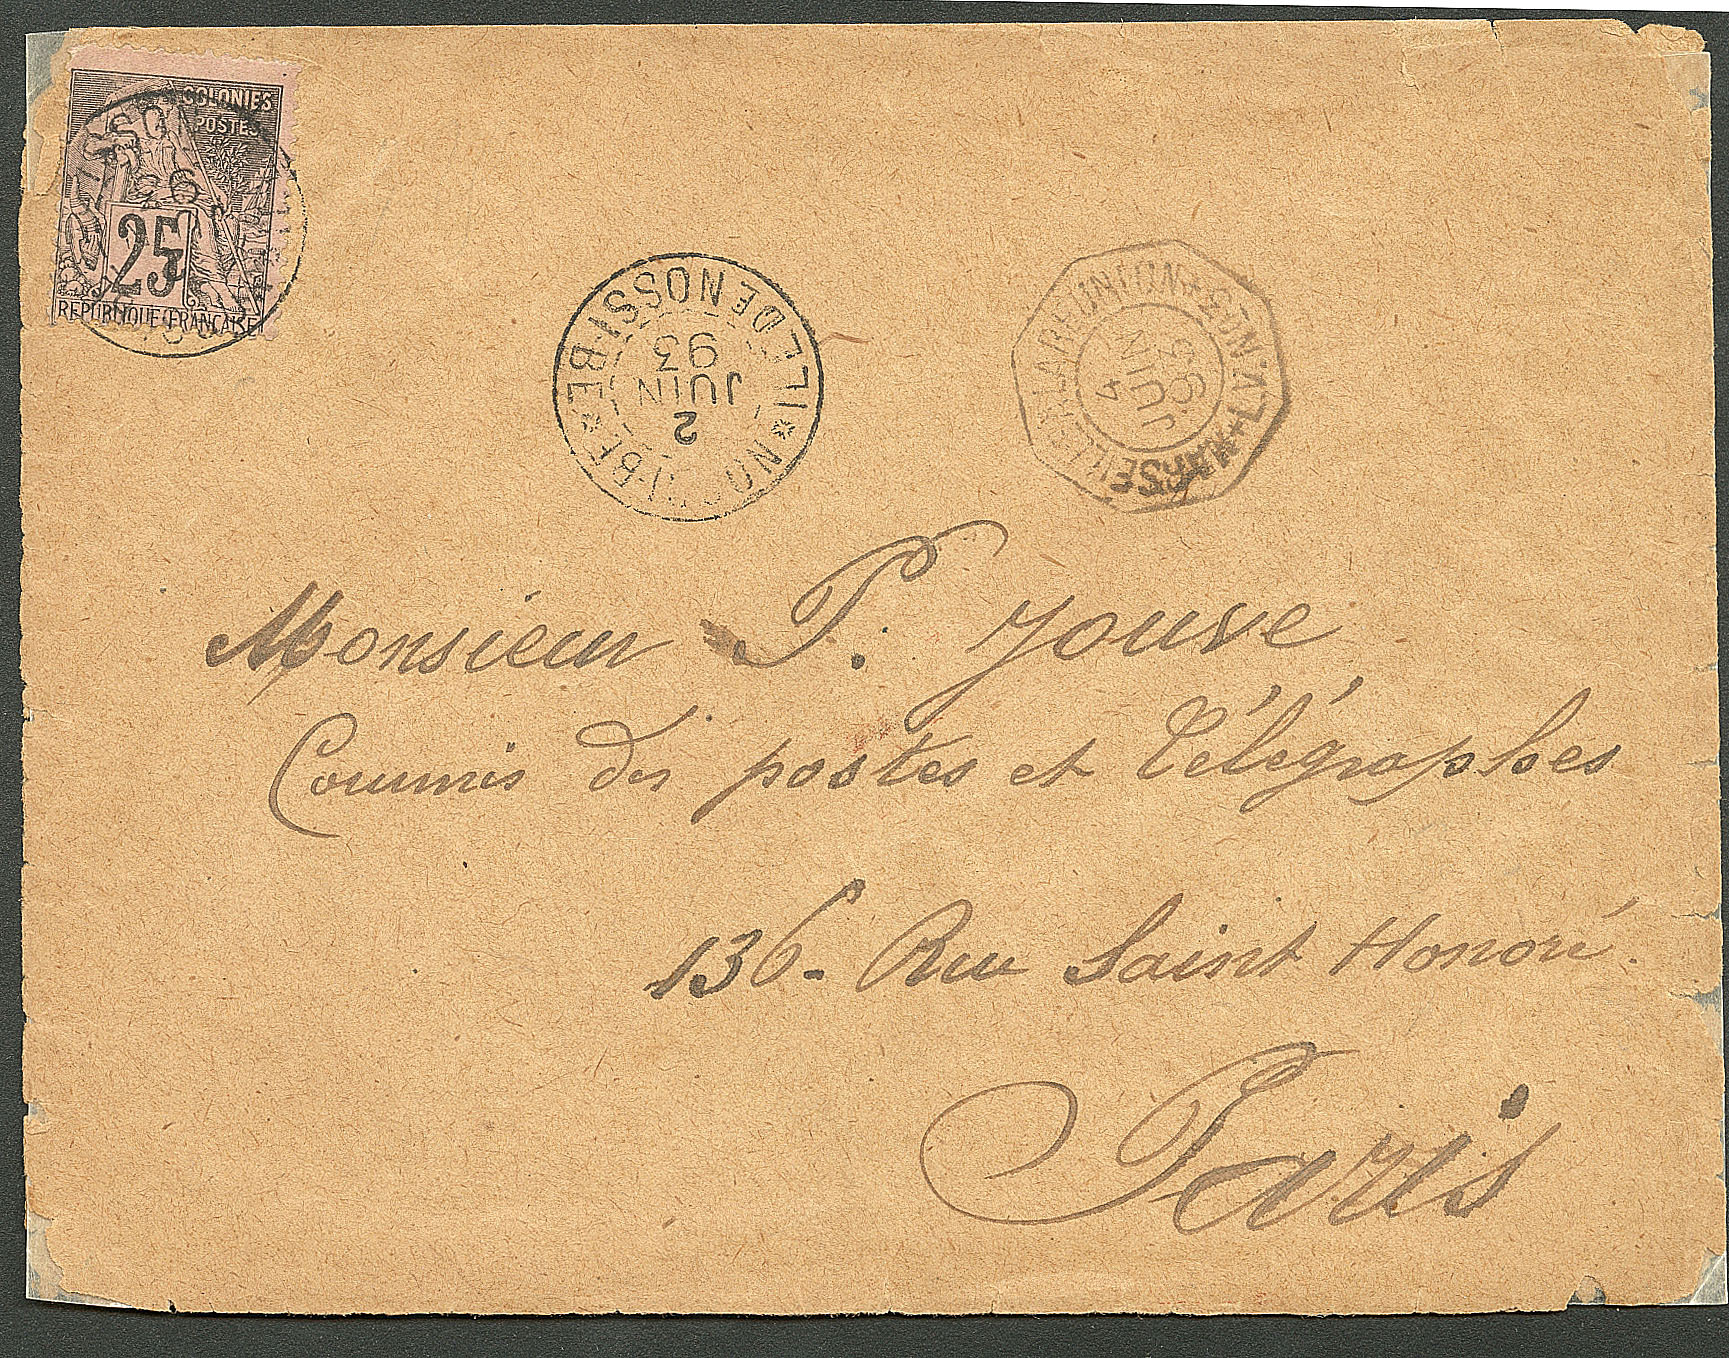 COLONIES
POSTES
25
REPUBLIQUE FRANÇAISE
ILE DE NOSSI-BE
2
JUIN
93
LA REUNION
4
JUIN
93
MARSEILLE
Monsieur P. Jouve
Commis des postes et Télégraphes
136- Rue Saint Honoré.
Paris